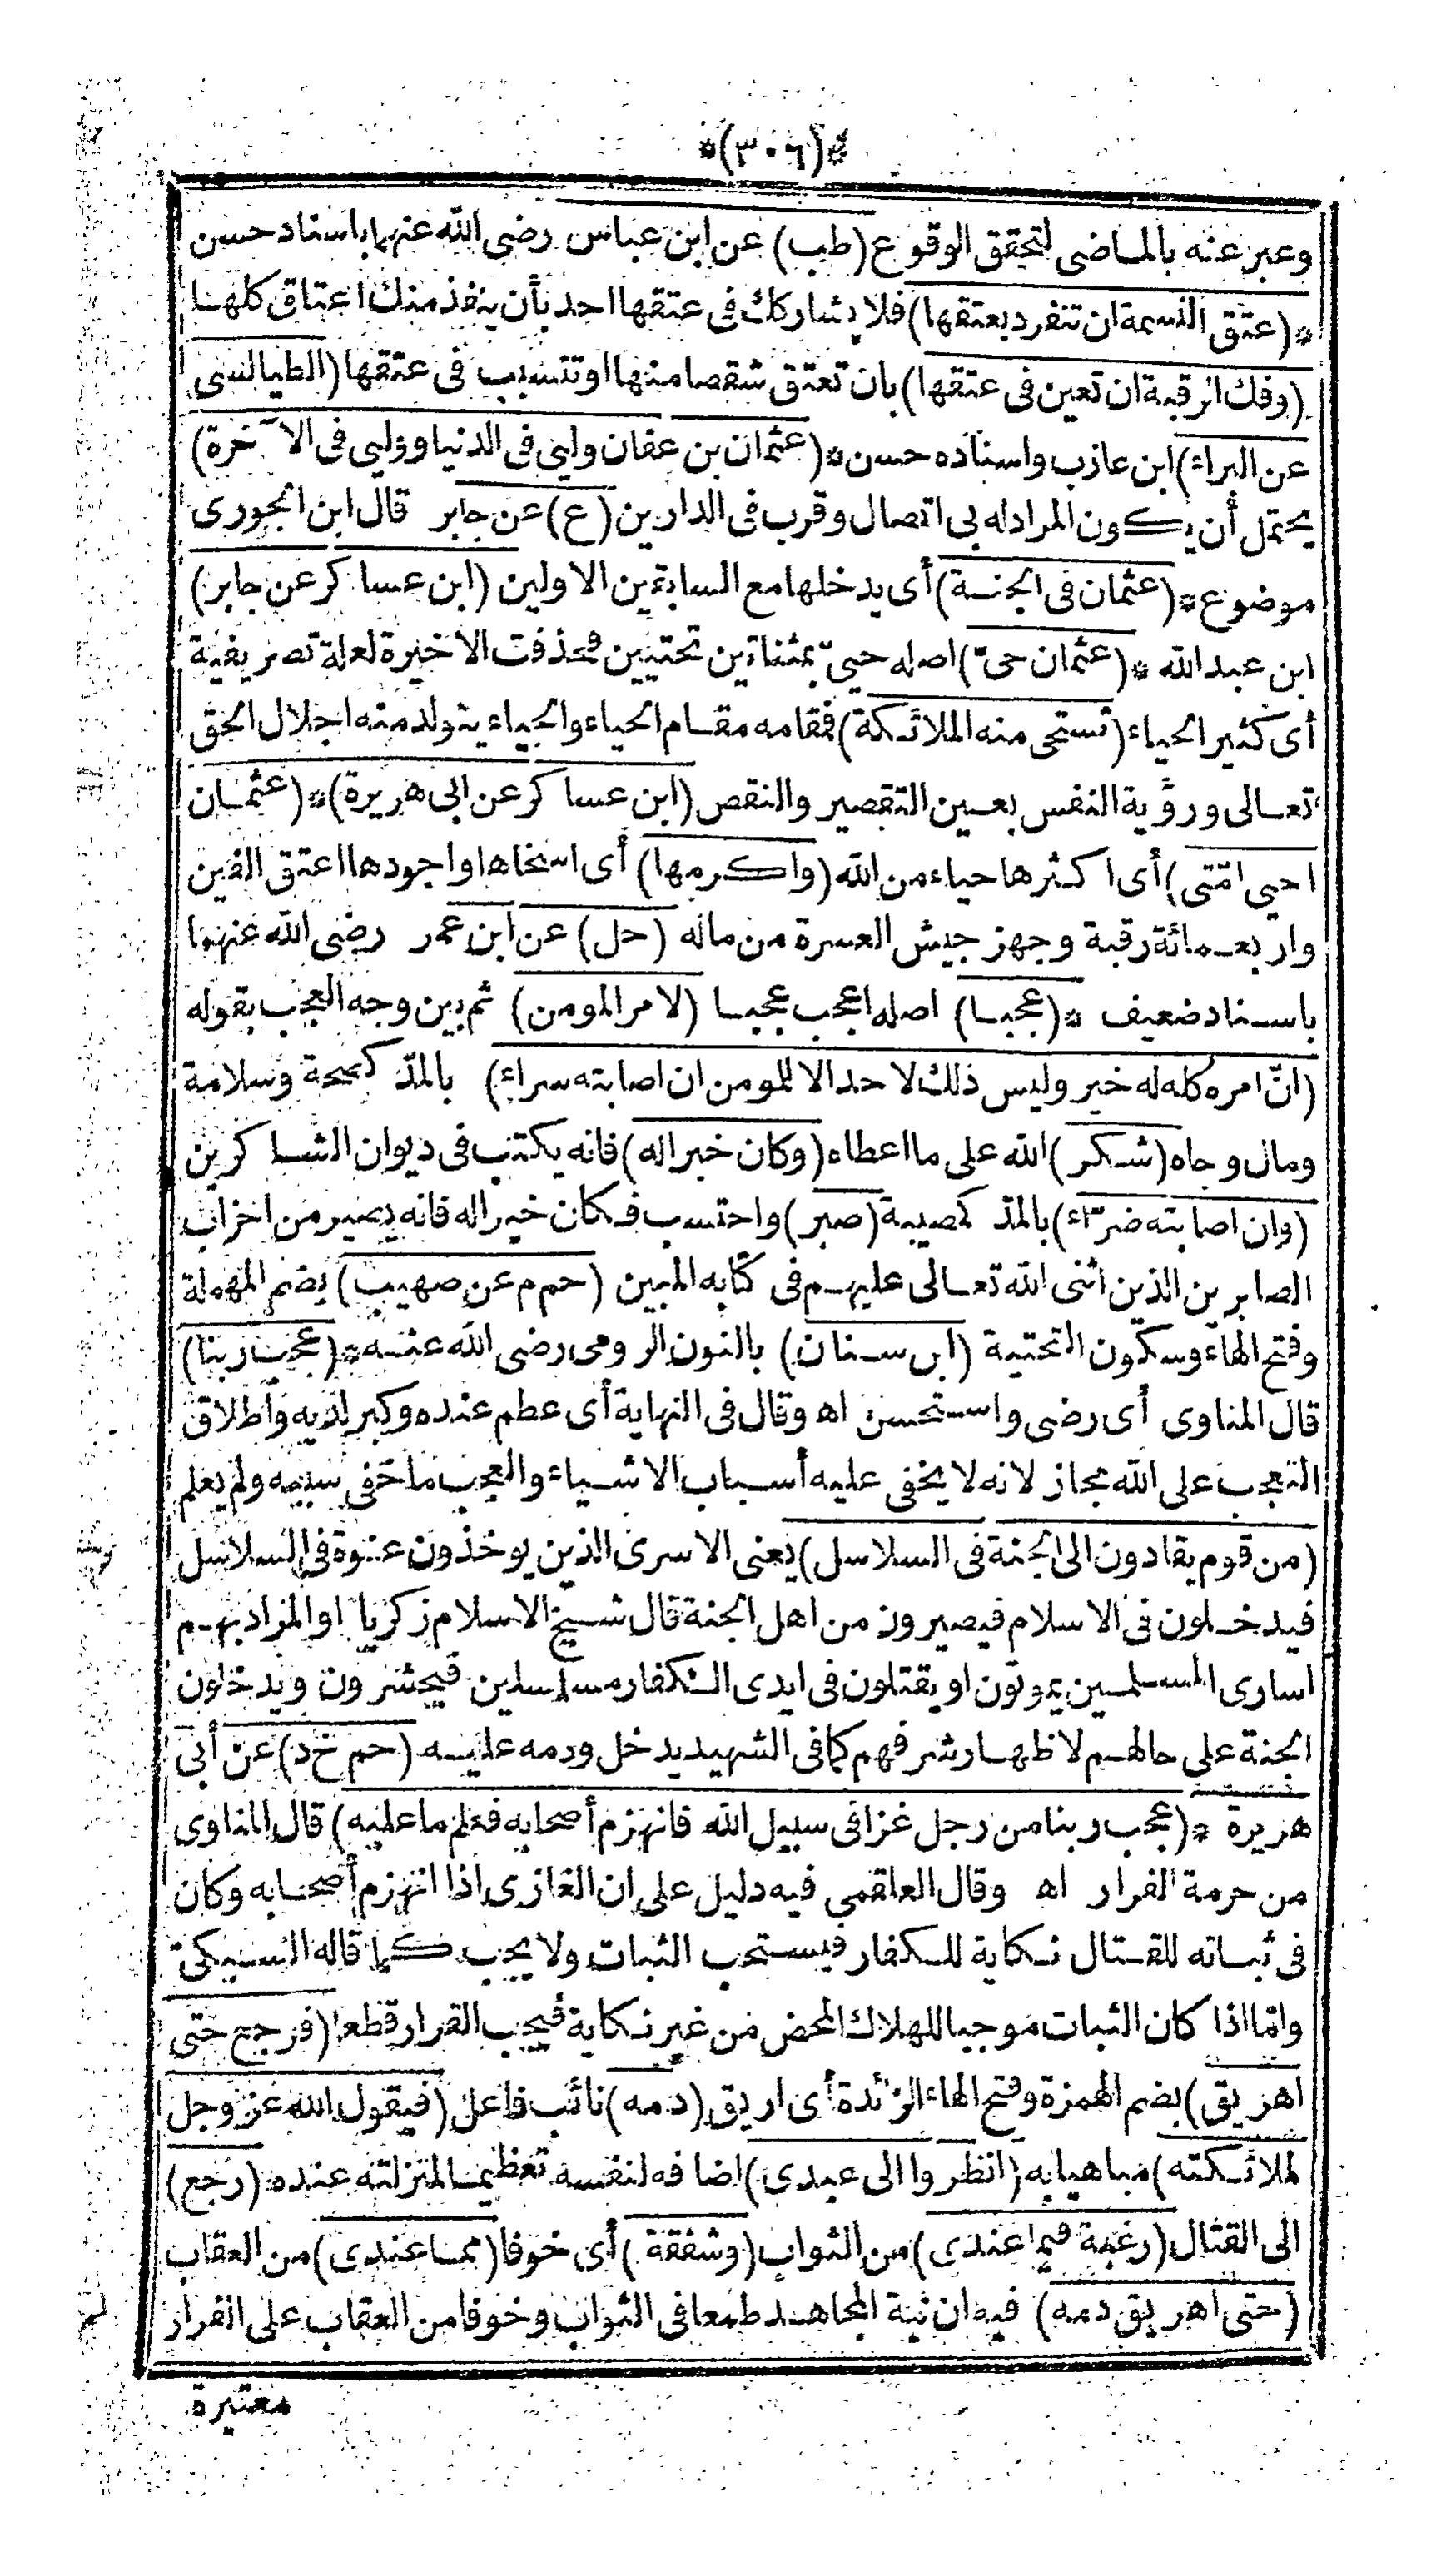 *(٣٠٦)*
وعبر عنه بالماضى لتحقق الوقوع (طب) عن ابن عباس رضى الله عنهما باسناد حسن
*(عتق النسمة ان تنفرد بعتقها) فلا يشاركك فى عتقها احد بأن ينفذ منك اعتاق كلها
(وفك الرقبة ان تعين فى عتقها) بان تعتق شقصا منها او تتسبب فى عتقها (الطيالسى
عن البراء) ابن عازب واسناده حسن *(عثمان بن عفان وليى فى الدنيا ووليى فى الآخرة)
يحتمل أن يكون المراد له بى اتصال وقرب فى الدارين (ع) عن جابر قال ابن الجوزى
موضوع *(عثمان فى الجنة) أى يدخلها مع السابقين الاولين (ابن عساكر عن جابر)
ابن عبد الله *(عثمان حىّ) اصله حيىّ بمثناتين تحتيتين فحذفت الاخيرة لعلة تصريفية
أى كثير الحياء (تستحى منه الملائكة) فقامه مقام الحياء والحياء يتولد منه اجلال الحق
تعالى ورؤية النفس بعين التقصير والنقص (ابن عساكر عن ابى هريرة) *(عثمان
احيى امّتى) أى اكثرها حياء من الله (واكرمها) أى اسخاها واجودها اعتق الفين
واربعمائة رقبة وجهز جيش العسرة من ماله (حل) عن ابن عمر رضى الله عنهما
باسناد ضعيف *(عجبا) اصله اعجب عجبا (لامر المومن) ثم بين وجه العجب بقوله
(انّ امره كله له خير وليس ذلك لاحد الا للمومن ان اصابته سراء) بالمدّ كصحة وسلامة
ومال وجاه (شكر) الله على ما اعطاه (وكان خيرا له) فانه يكتب فى ديوان الشاكرين
(وان اصابته ضرّاء) بالمدّ كمصيبة (صبر) واحتسب فكان خيرا له فانه يصير من احزاب
الصابرين الذين اثنى الله تعالى عليهم فى كتابه المبين (حم م عن صهيب) بضم المهملة
وفتح الهاء وسكون التحتية (ابن سنان) بالنون الرومى رضى الله عنه *(عجب ربنا)
قال المناوى أى رضى واستحسن اه وقال فى النهاية أى عظم عنده وكبر لديه واطلاق
التعجب على الله مجاز لانه لا يخفى عليه أسباب الاشياء والعجب ما خفى سببه ولم يعلم
(من قوم يقادون الى الجنة فى السلاسل) يعنى الاسرى الذين يوخذون عنوة فى السلاسل
فيدخلون فى الاسلام فيصيرون من اهل الجنة قال شيخ الاسلام زكريا او المراد بهم
اسارى المسلمين يموتون او يقتلون فى ايدى الكفار مسلسلين فيحشرون ويدخلون
الجنة على حالهم لاظهار شرفهم كما فى الشهيد يدخل ودمه عليه (حم خ د) عن أبى
هريرة *(عجب ربنا من رجل غزا فى سبيل الله فانهزم أصحابه فعلم ما عليه) قال المناوى
من حرمة الفرار اه وقال العلقمى فيه دليل على ان الغازى اذا انهزم أصحابه وكان
فى ثباته للقتال نكاية للكفار فيستحب الثبات ولا يجب كما قاله السبكىّ
وامّا اذا كان الثبات موجبا للهلاك المحض من غير نكاية فيجب الفرار قطعا (فرجع حتى
اهريق) بضم الهمزة وفتح الهاء الزائدة أى اريق (دمه) نائب فاعل (فيقول الله عز وجل
لملائكته) مباهيا به (انظروا الى عبدى) اضافه لنفسه تعظيما لمنزلته عنده (رجع)
الى القتال (رغبة فيما عندى) من الثواب (وشفقة) أى خوفا (مما عندى) من العقاب
(حتى اهريق دمه) فيه ان نية المجاهد طمعا فى الثواب وخوفا من العقاب على الفرار
معتبرة